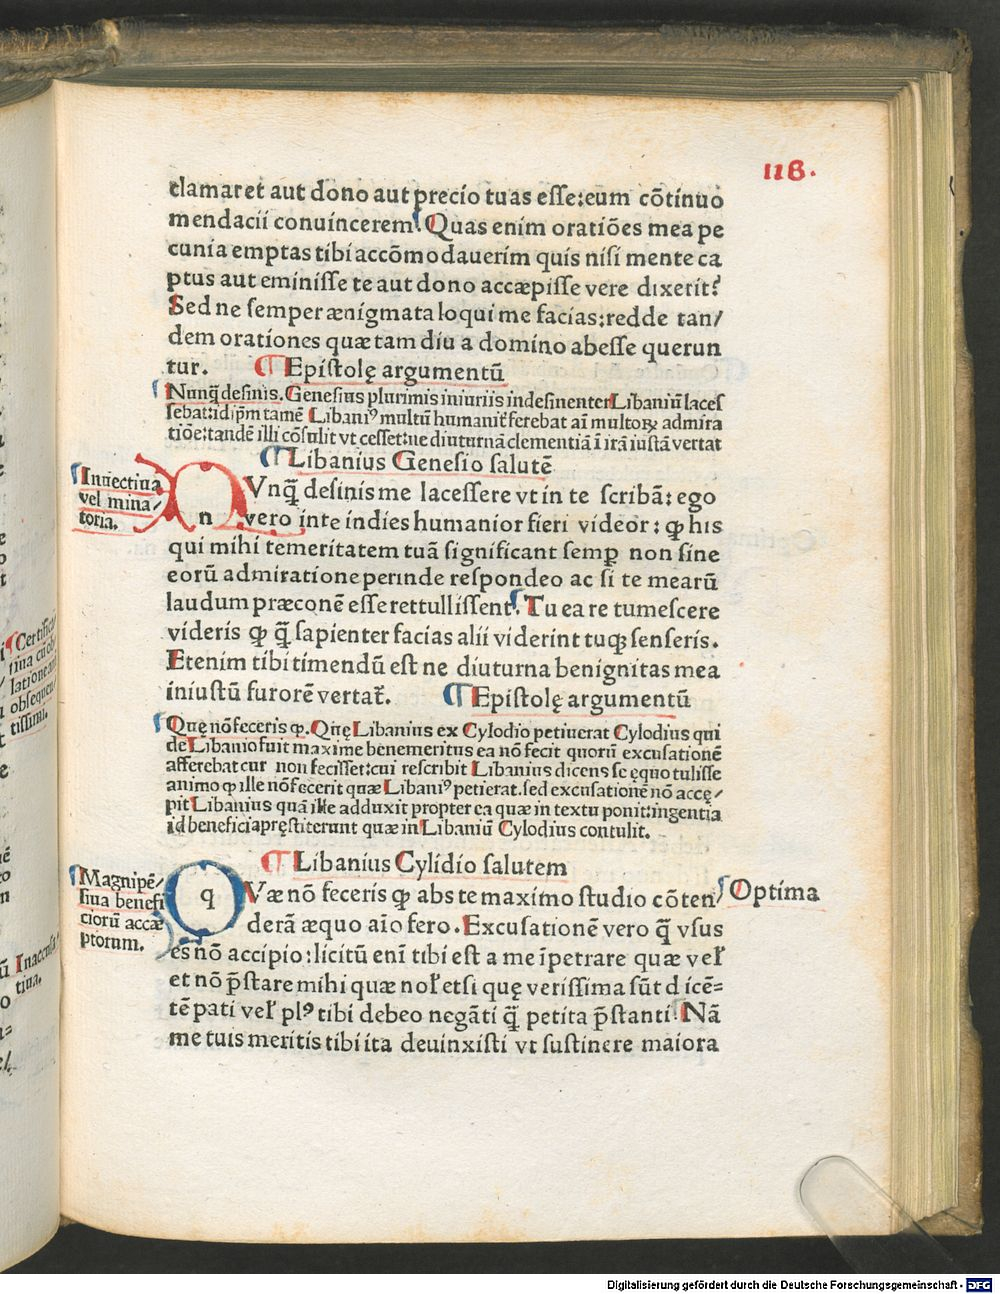 118.
clamaret aut dono aut precio tuas esse:eum cõtinuo
mendacii conuincerem. Quas enim oratiões mea pe
cunia emptas tibi accõmodauerim quis nisi mente ca
ptus aut eminisse te aut dono accæpisse vere dixerit?
Sed ne semper ænigmata loqui me facias:redde tan/
dem orationes quæ tam diu a domino abesse querun
tur. ¶Epistolę argumentũ
Nunq̃ desinis. Genesius plurimis iniuriis indesinenter Libaniũ laces
sebat:id ip̃m tamẽ Libaniꝰ multũ humanit̃ ferebat aĩ multoꝝ admira
tiõe:tandẽ illi cõsulit vt cesset:ne diuturnã clementiã ĩ irã iustã vertat
¶Libanius Genesio salutẽ
Inuectiua
vel mina/
toria.
nVnq̃ desinis me lacessere vt in te scribã: ego
vero in te indies humanior fieri videor: ꝙ his
qui mihi temeritatem tuã significant semꝑ non sine
eorũ admiratione perinde respondeo ac si te mearũ
laudum præconẽ esse rettullissent. Tu ea re tumescere
videris ꝙ q̃ sapienter facias alii viderint tuqꝫ senseris.
Etenim tibi timendũ est ne diuturna benignitas mea
iniustũ furorẽ vertat̃. ¶Epistolę argumentũ
Quę nõ feceris ꝙ. Quę Libanius ex Cylodio petiuerat Cylodius qui
de Libanio fuit maxime benemeritus ea nõ fecit quorũ excusationẽ
afferebat cur non fecisset:cui rescribit Libanius dicens se ęquo tulisse
animo ꝙ ille nõ fecerit quæ Libaniꝰ petierat. sed excusationẽ nõ accę/
pit Libanius quã ille adduxit propter ea quæ in textu ponit:ingentia
id beneficia pręstiterunt quæ in Libaniũ Cylodius contulit.
¶Libanius Cylidio salutem
Magnipẽ/
siua benefi
ciorũ accæ
ptorum.
Optima
qVæ nõ feceris ꝙ abs te maximo studio cõten/
derã æquo aĩo fero. Excusationẽ vero q̃ vsus
es nõ accipio:licitũ enĩ tibi est a me ĩpetrare quæ veł
et nõ p̃stare mihi quæ noł etsi quę verissima sũt dicẽ=
tẽ pati veł plꝰ tibi debeo negãti q̃ petita p̃stanti. Nã
me tuis meritis tibi ita deuinxisti vt sustinere maiora
Certific
tiua cũ ob
latione
obsequen
tissimi.
Inaccusa
tiua.
Digitalisierung gefördert durch die Deutsche Forschungsgemeinschaft - DFG